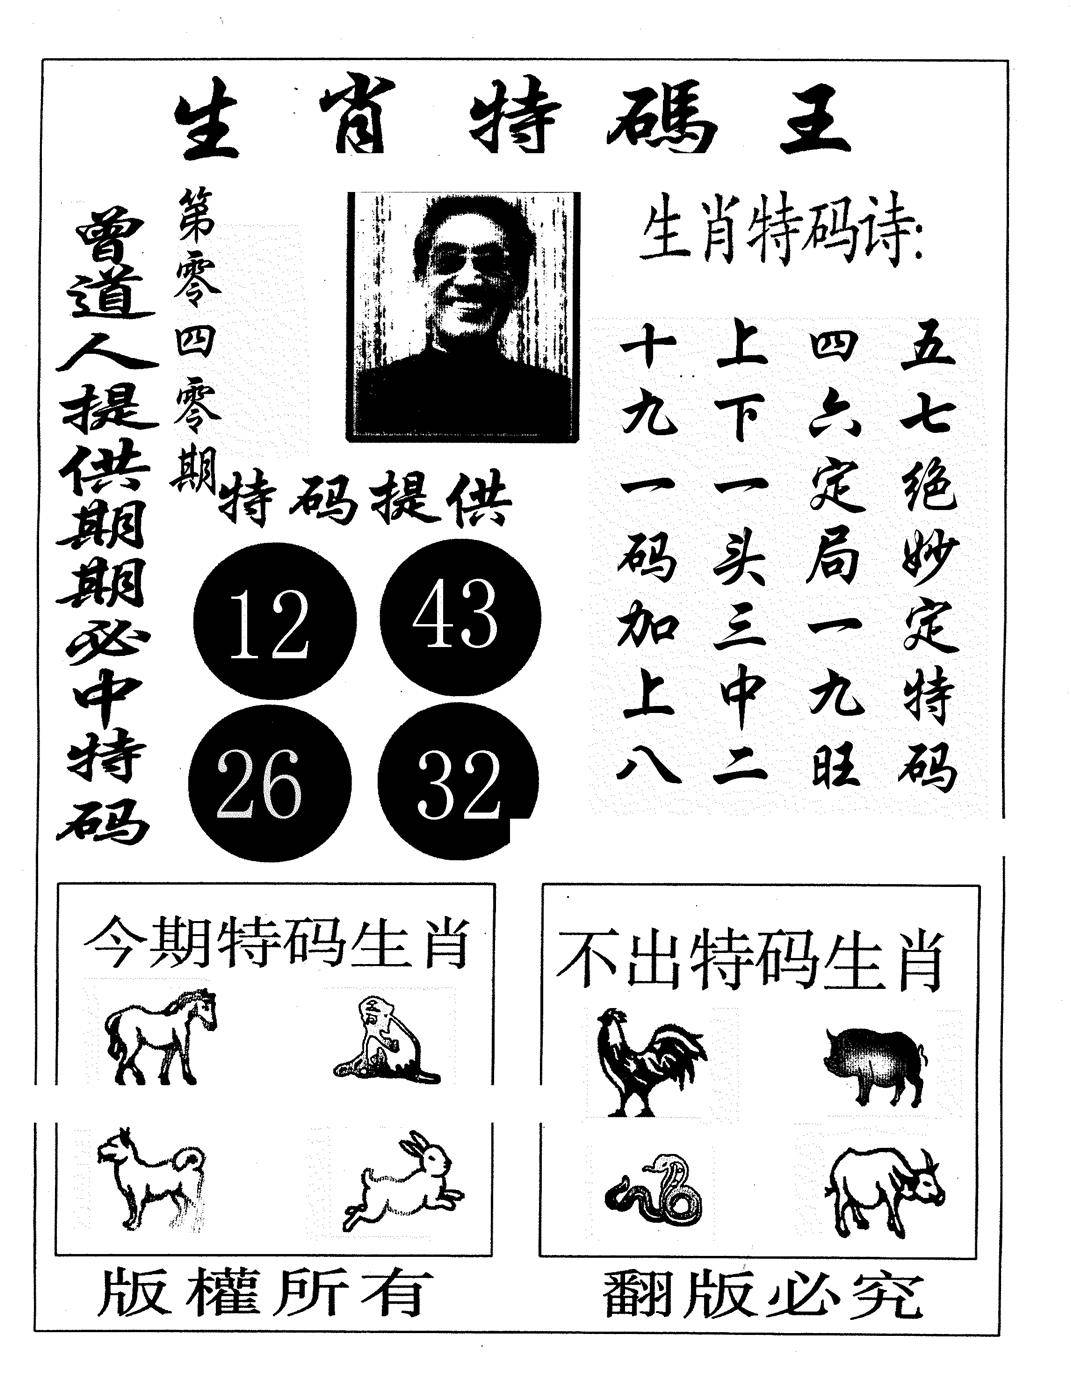 生肖特碼王
曾道人提供期期必中特码
第零四零期
特码提供
12 43
26 32
生肖特码诗:
五七绝妙定特码
四六定局一九旺
上下一头三中二
十九一码加上八
今期特码生肖
不出特码生肖
版權所有
翻版必究